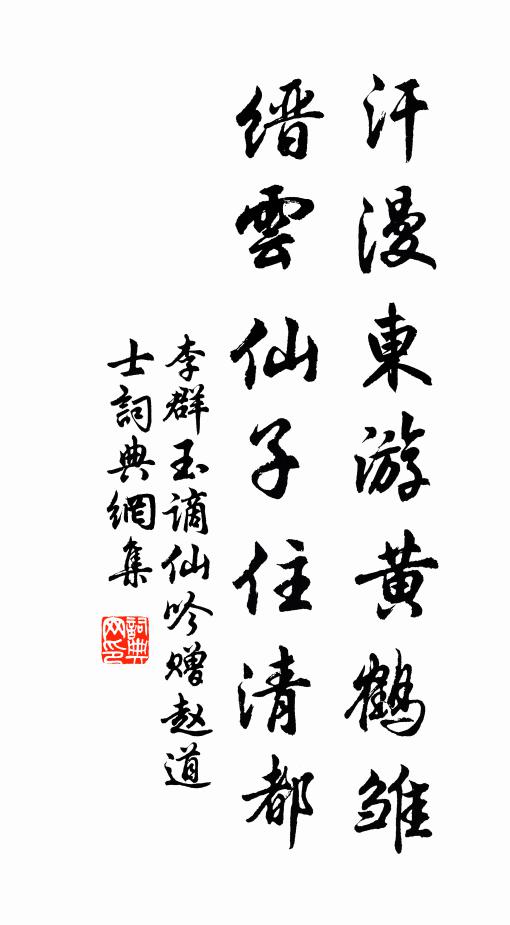 汗漫東游黄鶴雏
縉雲仙子住清都
李群玉謫仙吟赠赵道
士詞典網集
詞典
网印